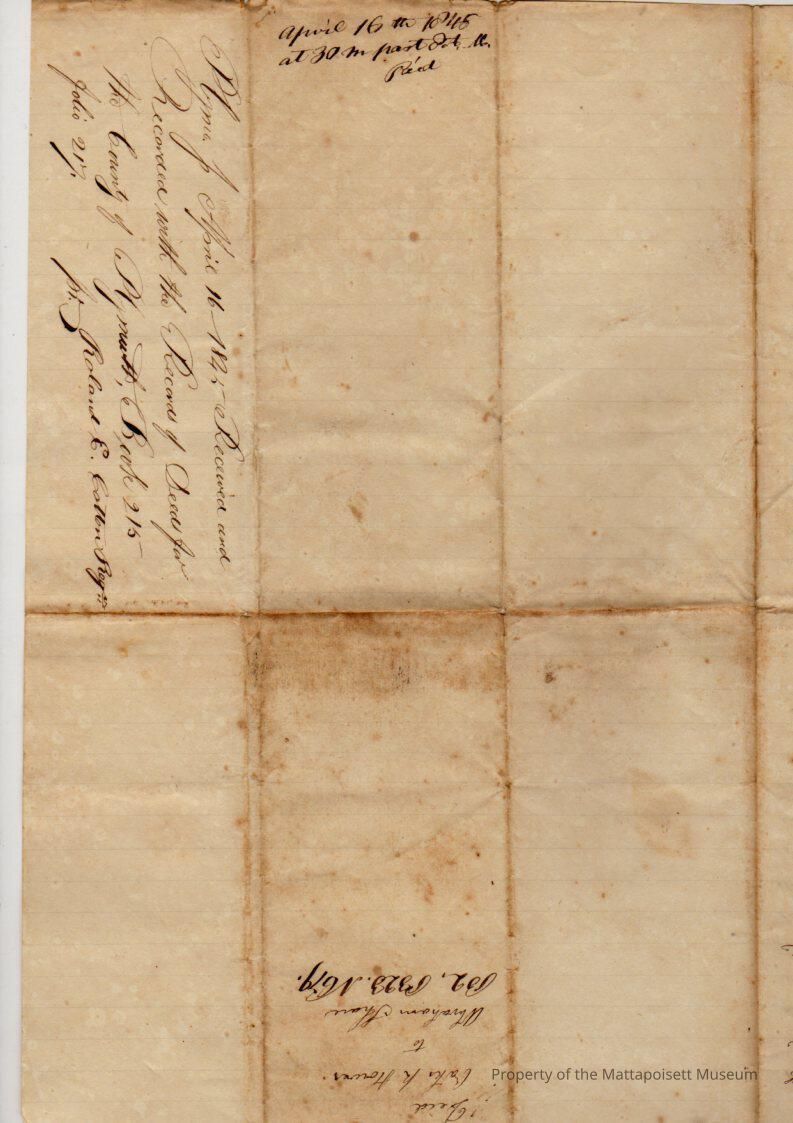 April 16 th 1845
at 30 m past
Rec'd
Plym. ss April 16 1845 Received and
Recorded with the Records of Deeds for
the County of Plymouth, Book 215
folio 217.
pr. Roland E. Cotton Regr.
Deed
to
Abraham Shaw
Property of the Mattapoisett Museum